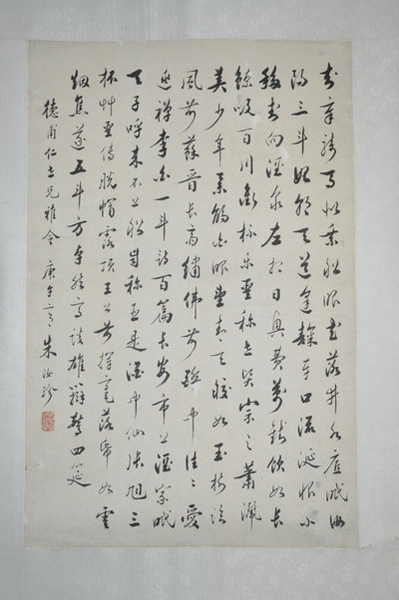 知章騎馬似乘船眼花落井水底眠汝
陽三斗始朝天道逢麯車口流涎恨不
移封向酒泉左相日興費萬錢飲如長
鯨吸百川銜杯樂聖稱避賢宗之蕭灑
美少年舉觴白眼望青天皎如玉樹臨
風前蘇晉長齋繡佛前醉中往往愛
逃禪李白一斗詩百篇長安市上酒家眠
天子呼來不上船自稱臣是酒中仙張旭三
杯艸聖傳脫帽露頂王公前揮毫落紙如雲
烟焦遂五斗方卓然高談雄辯驚四筵
德甫仁世兄雅令 庚午 朱汝珍